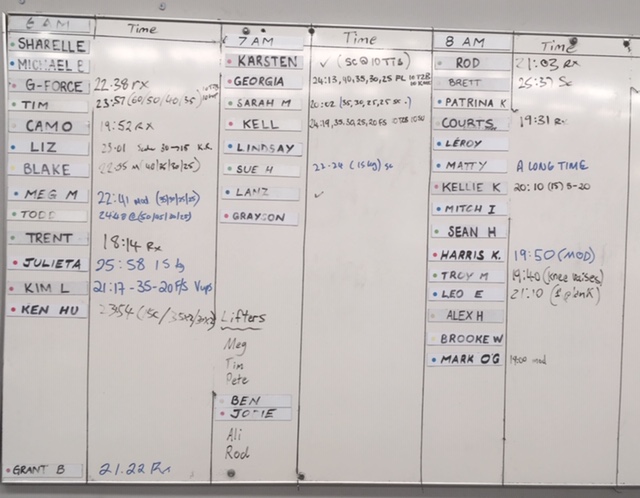 6 AM Time
SHARELLE
MICHAEL B
G-FORCE 22:38 rx
TIM 23:57 (60/50/40/35)
CAMO 19:52 RX
LIZ 23:01 30→15 K.R.
BLAKE
MEG M 22:41 mod
TODD 24:48
TRENT 18:14 Rx
JULIETA 25:58 15kg
KIM L 21:17 -35-20 F/S Vups
KEN HU 23:54
GRANT B 21.22 Rx
7 AM Time
KARSTEN ✓ (SC@10TTB)
GEORGIA 24:13, 40,35,30,25 PL
SARAH M 20:02 (35,30,25,25 sc.)
KELL 24:19, 35,30,25,20 FS
LINDSAY
SUE H 22:24 (15kg) sc
LANZ ✓
GRAYSON
Lifters
Meg
Tim
Pete
BEN
JODIE
Ali
Rod
8 AM Time
ROD 21:03 Rx
BRETT 25:37 Sc
PATRINA K
COURTS 19:31 Rx
LEROY
MATTY A LONG TIME
KELLIE K 20:10 (15) 5-20
MITCH I
SEAN H
HARRIS K. 19:50 (MOD)
TROY M 19:40 (knee raises)
LEO E 21:10
ALEX H
BROOKE W
MARK O'G 19:00 mod